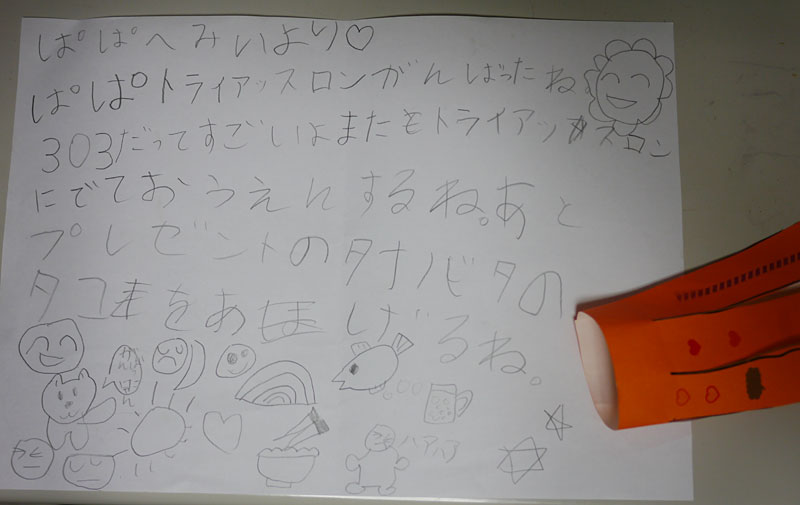 ぱぱへみいより♡
ぱぱトライアッスロンがんばったね。
303だってすごいよまたもトライアッスロン
にでておうえんするね。あと
プレゼントのタナバタの
タコをあげるね。
ハアハア